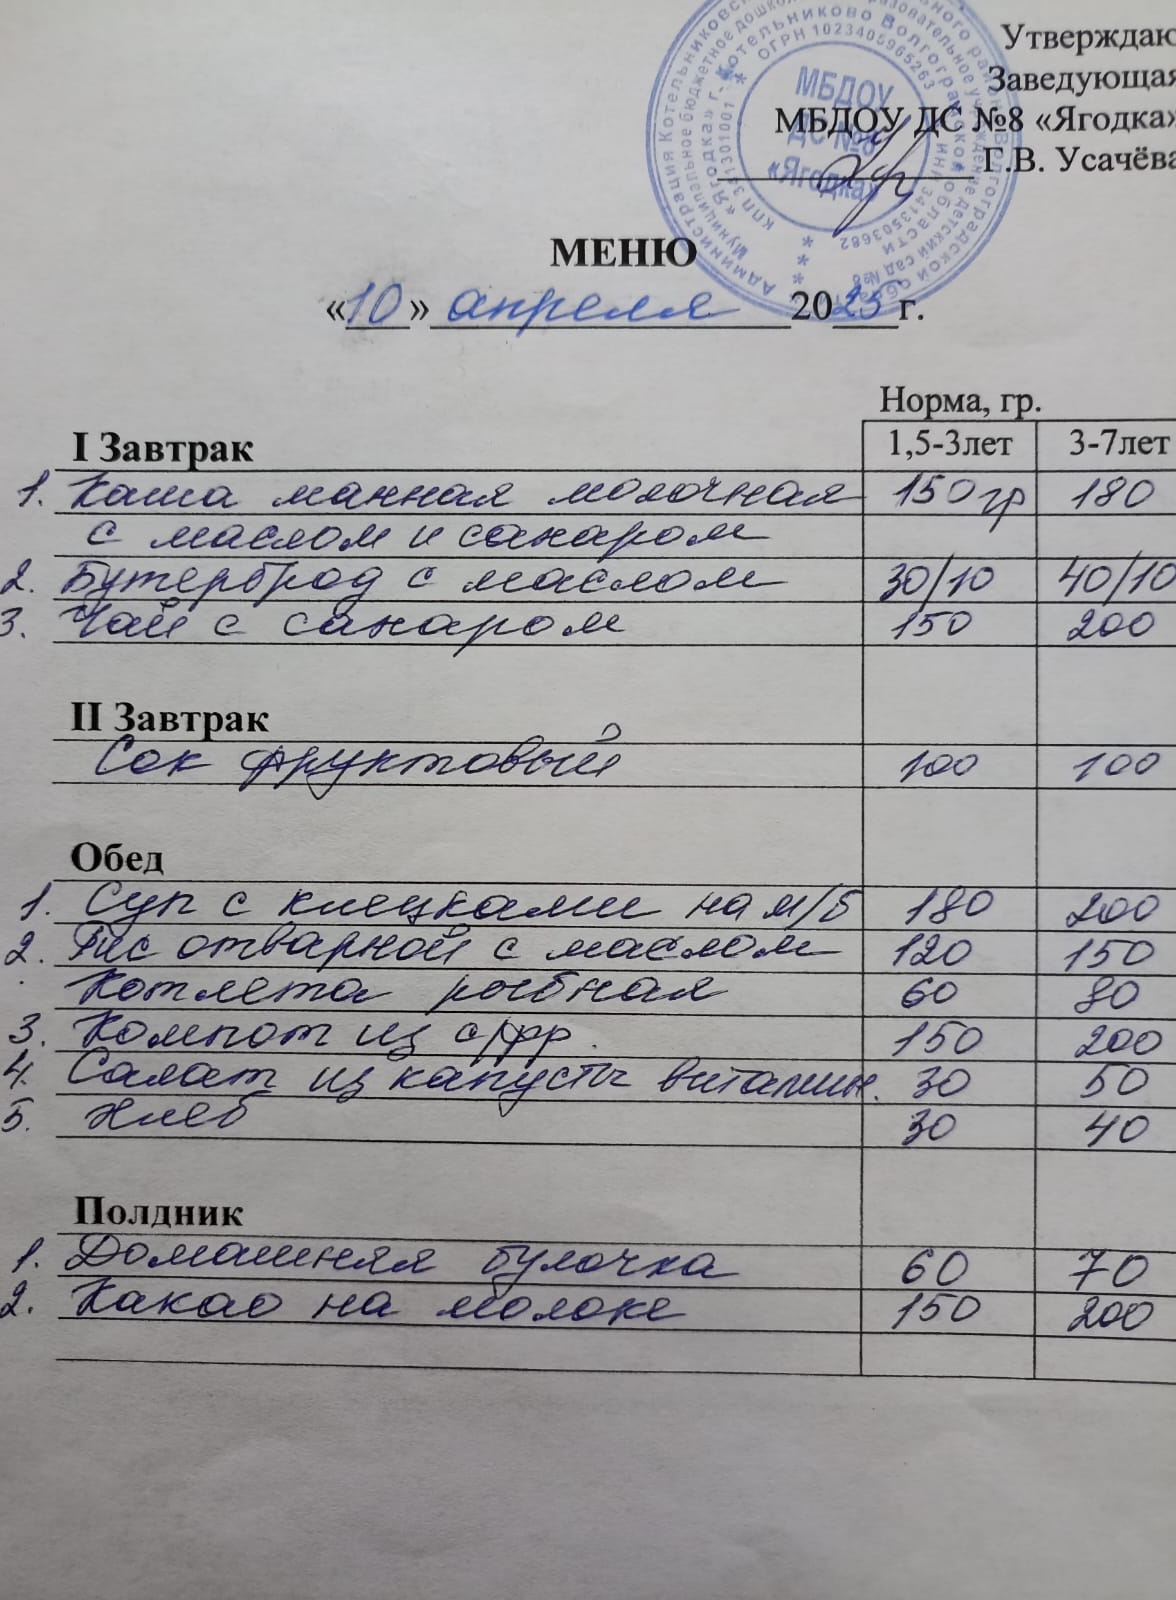 Утверждаю
Заведующая
МБДОУ ДС №8 «Ягодка»
Г.В. Усачёва
МБДОУ
ДС №8
«Ягодка»
ОГРН 1023405965263
КПП 341301001
ИНН 3413503682
МЕНЮ
«10» апреля 2025 г.
Норма, гр.
I Завтрак 1,5-3лет 3-7лет
1. Каша манная молочная 150 гр 180
с маслом и сахаром
2. Бутерброд с маслом 30/10 40/10
3. Чай с сахаром 150 200
II Завтрак
Сок фруктовый 100 100
Обед
1. Суп с клецками на м/б 180 200
2. Рис отварной с маслом 120 150
Котлета рыбная 60 80
3. Компот из с/фр. 150 200
4. Салат из капусты витамин. 30 50
5. Хлеб 30 40
Полдник
1. Домашняя булочка 60 70
2. Какао на молоке 150 200